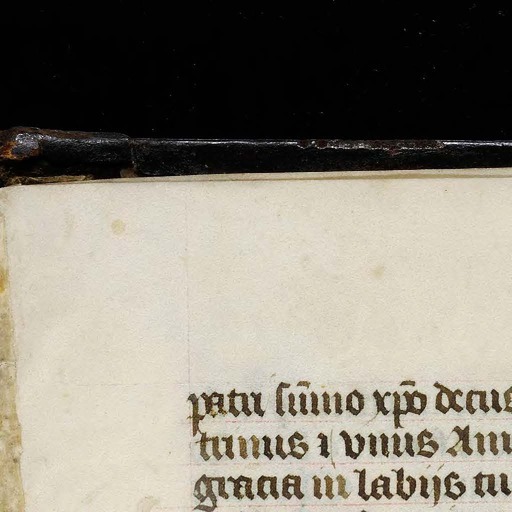 patri sum̄o xp̄o decus
trinus ⁊ vnus Am
gracia in labijs tu